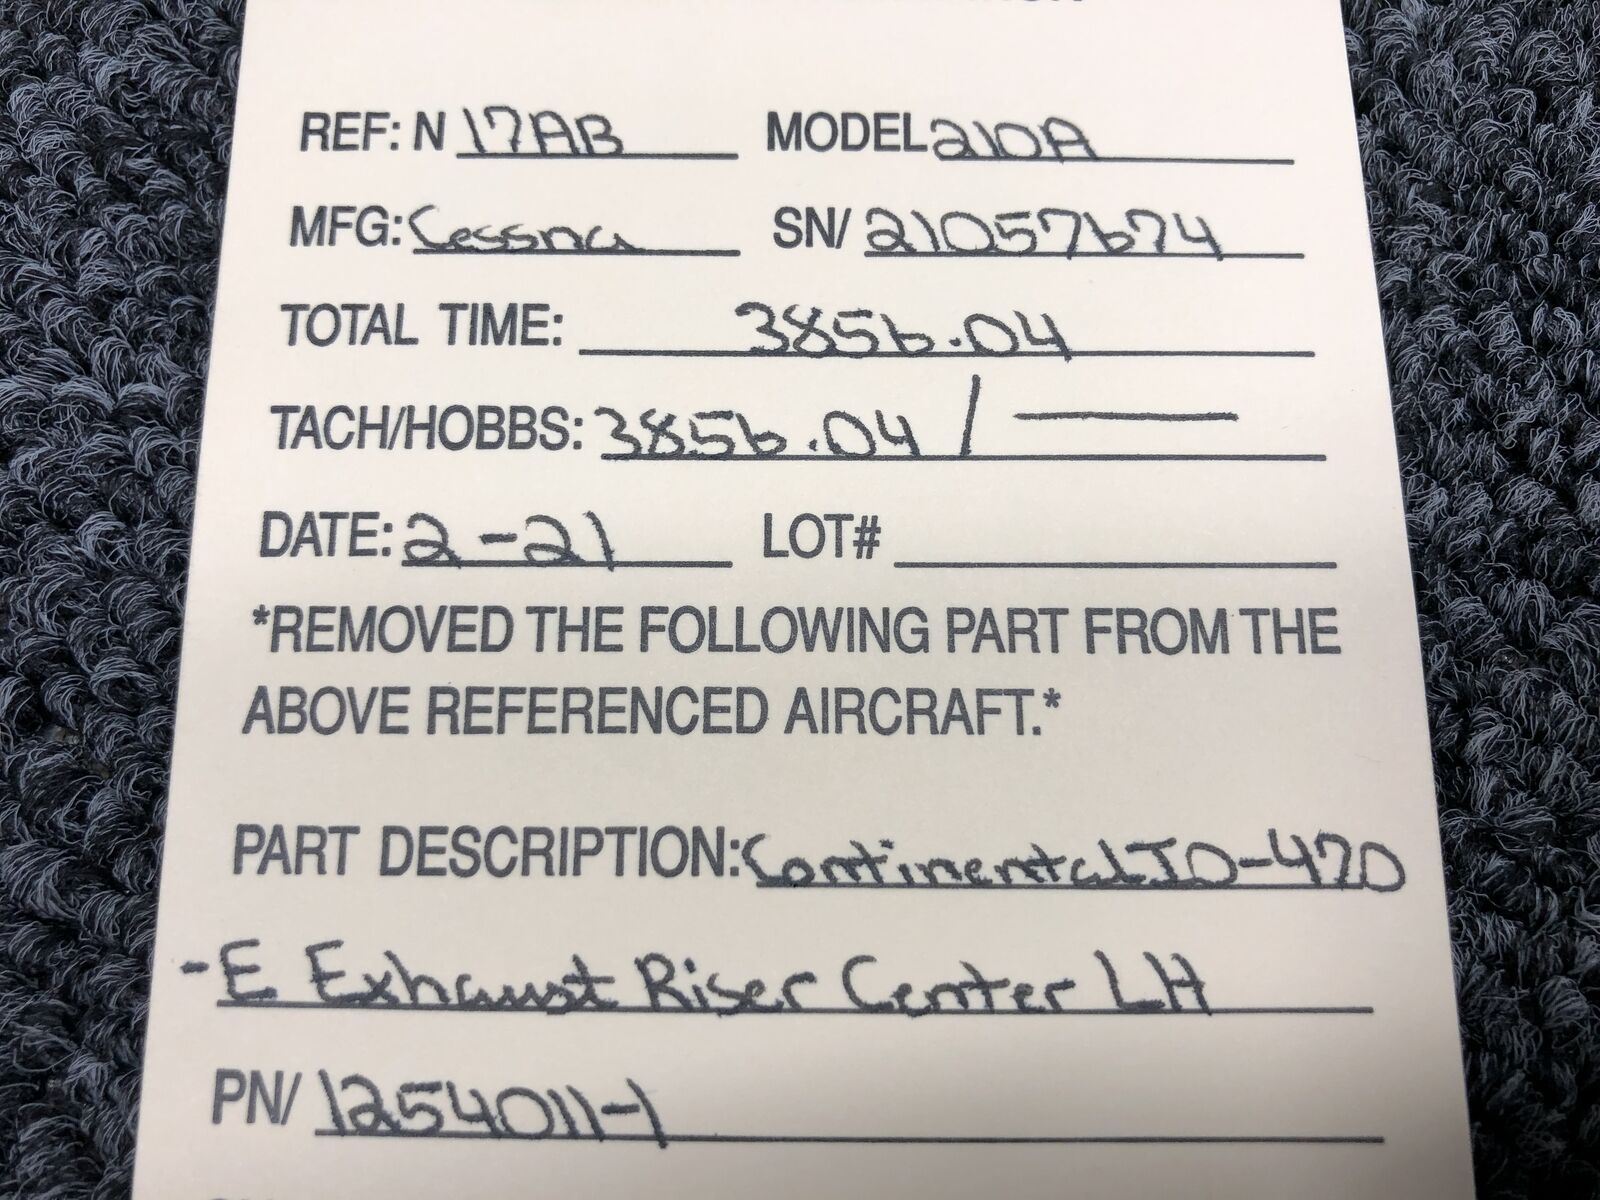 REF: N 17AB MODEL 210A
MFG: Cessna SN/ 21057674
TOTAL TIME: 3856.04
TACH/HOBBS: 3856.04 / —
DATE: 2-21 LOT#
*REMOVED THE FOLLOWING PART FROM THE
ABOVE REFERENCED AIRCRAFT.*
PART DESCRIPTION: Continental IO-470
-E Exhaust Riser Center LH
PN/ 1254011-1